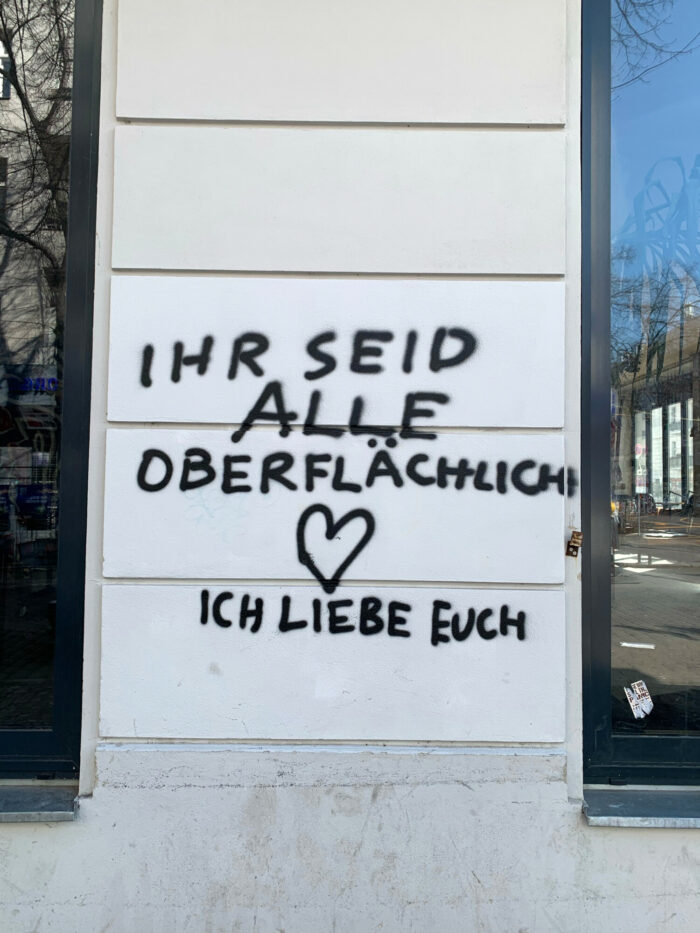 IHR SEID
ALLE
OBERFLÄCHLICH
ICH LIEBE EUCH